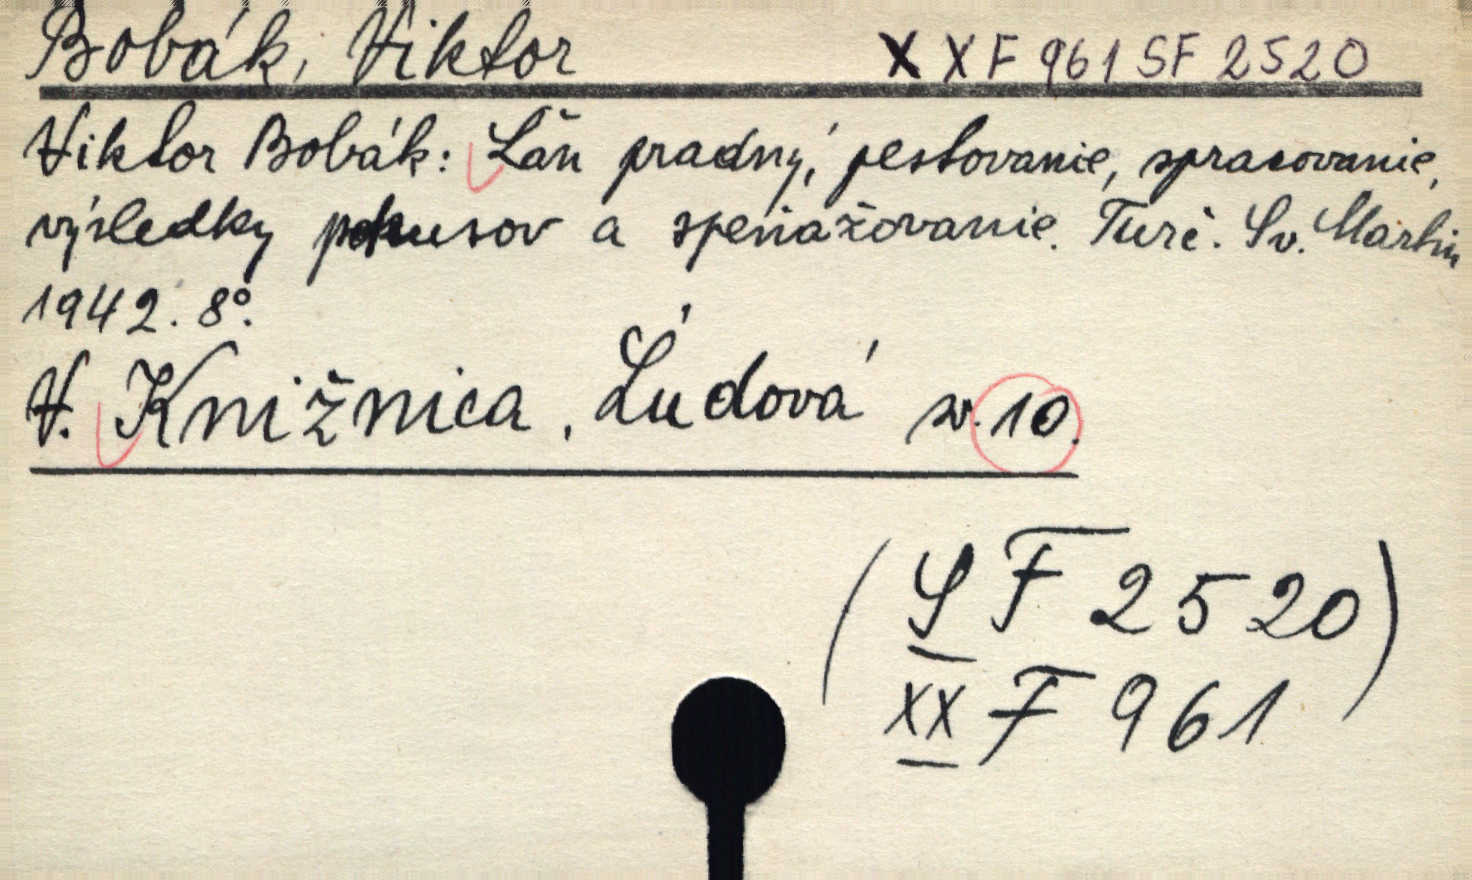 Bobák, Viktor XXF 961 SF 2520
Viktor Bobák: Ľan pradný, pestovanie, spracovanie,
výsledky pokusov a speňažovanie. Turč. Sv. Martin
1942. 8°.
V. Knižnica, Ľudová sv. 10.
(SF 2520)
XX F 961